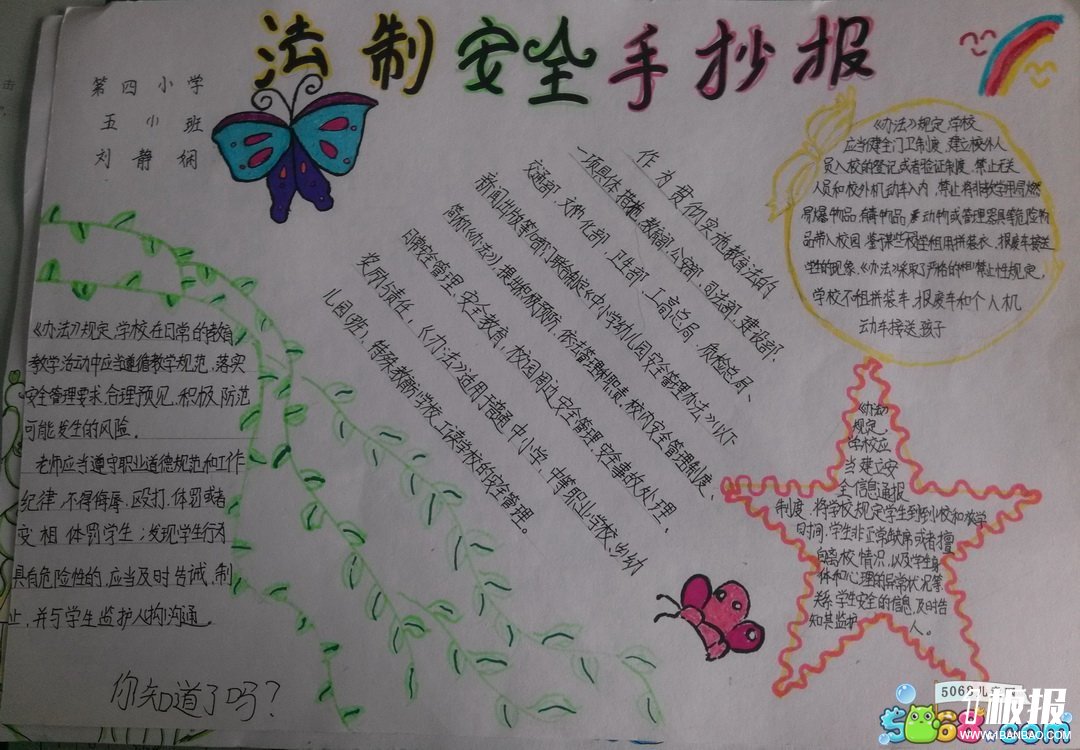 法制安全手抄报
第四小学
五小班
刘静娴
《办法》规定,学校在日常的教育
教学活动中应当遵循教学规范,落实
安全管理要求,合理预见、积极防范
可能发生的风险。
老师应当遵守职业道德规范和工作
纪律,不得侮辱、殴打、体罚或者
变相体罚学生;发现学生行为
具有危险性的,应当及时告诫、制
止,并与学生监护人沟通。
你知道了吗?
作为贯彻实施教育法的
一项具体措施,教育部、公安部、司法部、建设部、
交通部、文化部、卫生部、工商总局、质检总局、
新闻出版等10部门联合制定《中小学幼儿园安全管理办法》(以下
简称《办法》),提出积极预防、依法管理
校内安全管理制度、
日常安全管理、安全教育、校园周边安全管理、安全事故处理、
奖励与责任,《办法》适用于普通中小学、中等职业学校、乡幼
儿园(班)、特殊教育学校、工读学校的安全管理。
《办法》规定,学校
应当健全门卫制度,建立校外人
员入校的登记或者验证制度,禁止无关
人员和校外机动车入内,禁止将非教学用易燃
易爆物品、有毒物品、动物或管理器具等危险物
品带入校园。
租用拼装衣、报废车接送
学生的现象,《办法》采取了严格的禁止性规定,
学校不租拼装车、报废车和个人机
动车接送孩子
《办法》
规定,
学校应
当建立安
全信息通报
制度,将学校规定学生到校和放学
时间、学生非正常缺席或者擅
自离校情况、以及学生身
体和心理的异常状况等
关系学生安全的信息,及时告
知其监护人。
5068儿童网
5068.com
扮报
WWW.1BANBAO.COM